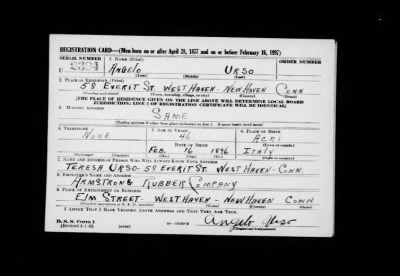 REGISTRATION CARD—(Men born on or after April 28, 1877 and on or before February 16, 1897)
SERIAL NUMBER 1. NAME (Print) ORDER NUMBER
U ANGELO URSO
(First) (Middle) (Last)
2. PLACE OF RESIDENCE (Print)
58 EVERIT ST. WEST HAVEN - NEW HAVEN CONN
(Number and street) (Town, township, village, or city) (County) (State)
[THE PLACE OF RESIDENCE GIVEN ON THE LINE ABOVE WILL DETERMINE LOCAL BOARD
JURISDICTION; LINE 2 OF REGISTRATION CERTIFICATE WILL BE IDENTICAL]
3. MAILING ADDRESS
SAME
[Mailing address if other than place indicated on line 2. If same insert word same]
4. TELEPHONE 5. AGE IN YEARS 6. PLACE OF BIRTH
NONE 46 ACRI
DATE OF BIRTH (Town or county)
FEB. 16 1896 ITALY
(Exchange) (Number) (Mo.) (Day) (Yr.) (State or country)
7. NAME AND ADDRESS OF PERSON WHO WILL ALWAYS KNOW YOUR ADDRESS
TERESA URSO - 58 EVERIT ST. WEST HAVEN - CONN
8. EMPLOYER'S NAME AND ADDRESS
ARMSTRONG RUBBER COMPANY
9. PLACE OF EMPLOYMENT OR BUSINESS
ELM STREET - WEST HAVEN - NEW HAVEN CONN
(Number and street or R. F. D. number) (Town) (County) (State)
I AFFIRM THAT I HAVE VERIFIED ABOVE ANSWERS AND THAT THEY ARE TRUE.
D. S. S. Form 1
Angelo Urso